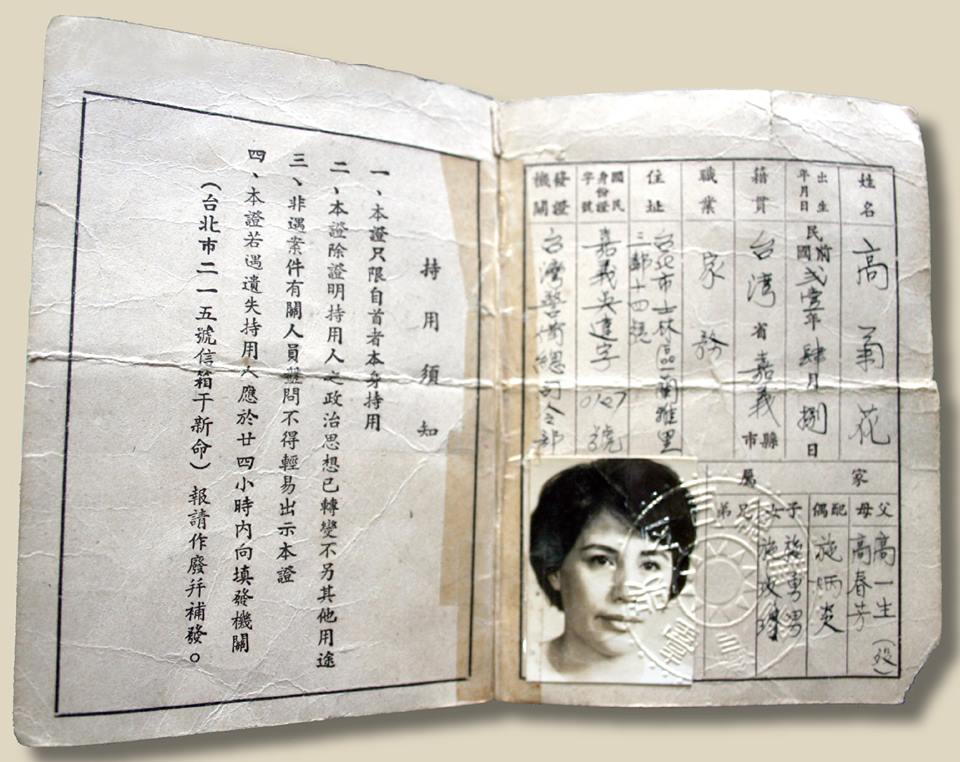 姓名 高菊花
出生年月日 民國前貳壹年肆月捌日
籍貫 台湾省嘉義縣市
職業 家務
住址 台北市士林區蘭雅里
三鄰十四號
國民身份證字號 嘉義吳達字0127號
發證機關 台灣警備總司令部
家屬
父母 高一生(歿)
高春芳
配偶 施炳炎
子女 施勇男
施
兄弟
持用須知
一、本證只限自首者本身持用
二、本證除證明持用人之政治思想已轉變不另其他用途
三、非遇案件有關人員盤問不得輕易出示本證
四、本證若遇遺失持用人應於廿四小時內向填發機關
(台北市二一五號信箱于新命)報請作廢并補發。